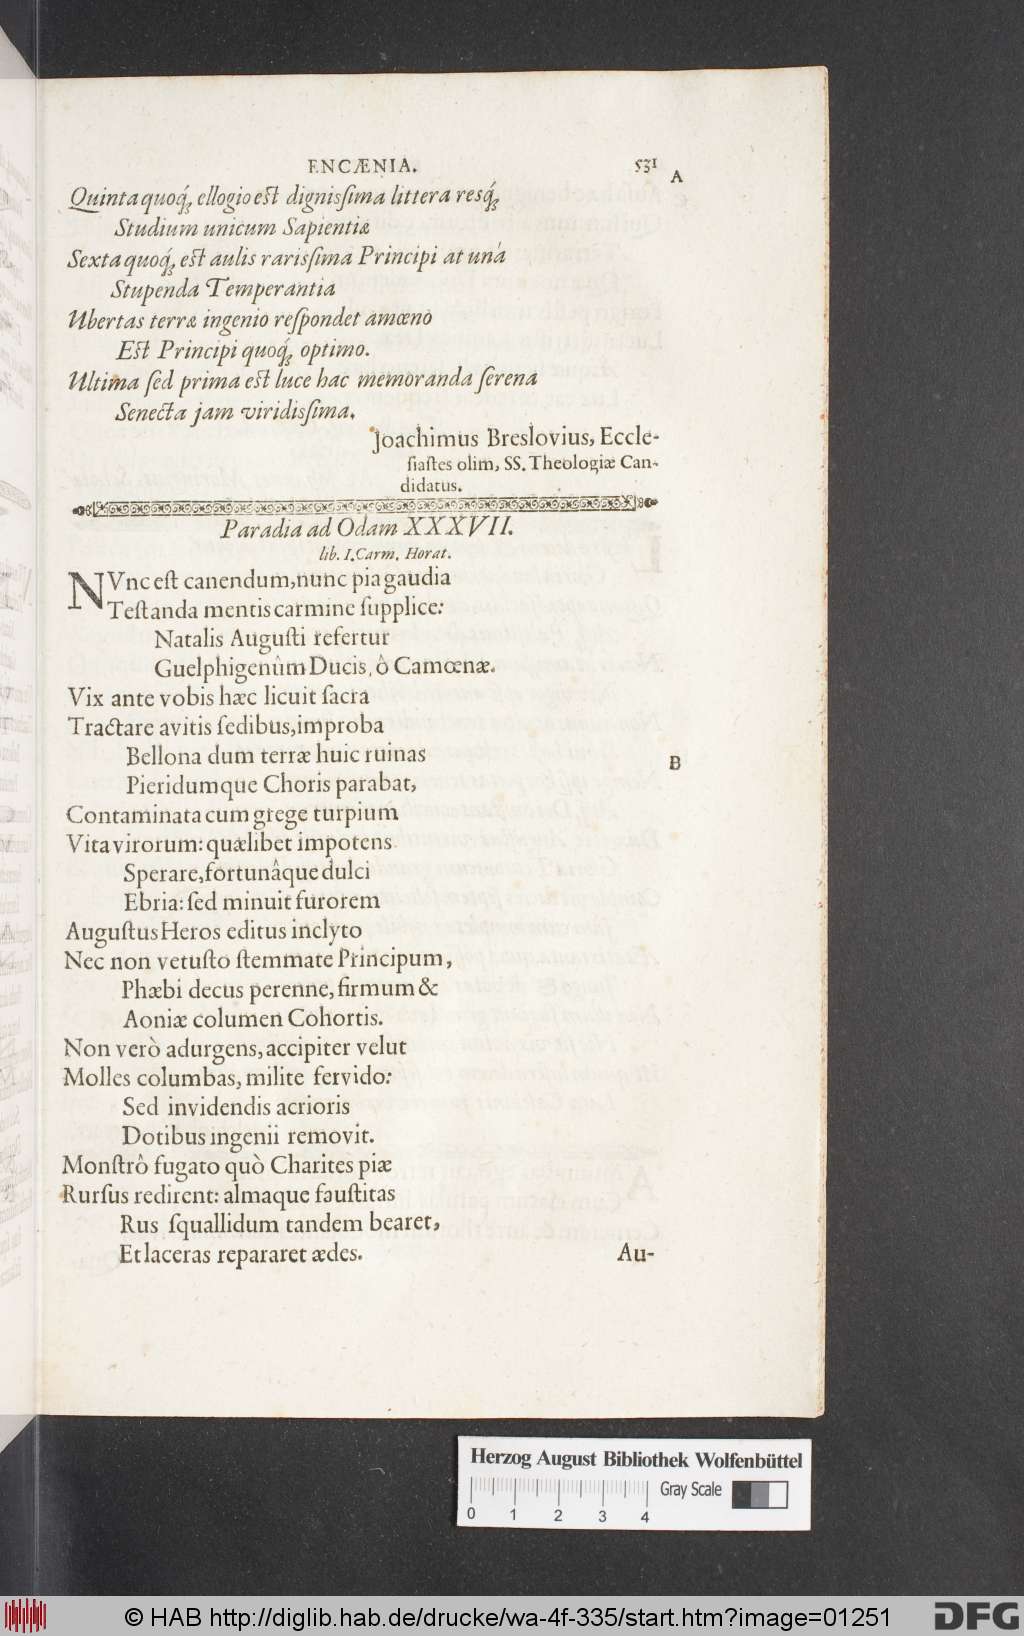 ENCÆNIA. 531
A
Quinta quoq́; ellogio est dignissima littera resq́;
Studium unicum Sapientiæ
Sexta quoq́; est aulis rarissima Principi at unà
Stupenda Temperantia
Ubertas terræ ingenio respondet amœno
Est Principi quoq́; optimo.
Ultima sed prima est luce hac memoranda serena
Senecta jam viridissima.
Joachimus Breslovius, Eccle-
siastes olim, SS. Theologiæ Can-
didatus.
Paradia ad Odam XXXVII.
lib. I. Carm. Horat.
NVnc est canendum, nunc pia gaudia
Testanda mentis carmine supplice:
Natalis Augusti refertur
Guelphigenûm Ducis, ô Camœnæ.
Vix ante vobis hæc licuit sacra
Tractare avitis sedibus, improba
Bellona dum terræ huic ruinas
B
Pieridumque Choris parabat,
Contaminata cum grege turpium
Vita virorum: quælibet impotens
Sperare, fortunâque dulci
Ebria: sed minuit furorem
Augustus Heros editus inclyto
Nec non vetusto stemmate Principum,
Phæbi decus perenne, firmum &
Aoniæ columen Cohortis.
Non verò adurgens, accipiter velut
Molles columbas, milite fervido:
Sed invidendis acrioris
Dotibus ingenii removit.
Monstrô fugato quò Charites piæ
Rursus redirent: almaque faustitas
Rus squallidum tandem bearet,
Et laceras repararet ædes. Au-
Herzog August Bibliothek Wolfenbüttel
Gray Scale
0 1 2 3 4
© HAB http://diglib.hab.de/drucke/wa-4f-335/start.htm?image=01251
DFG